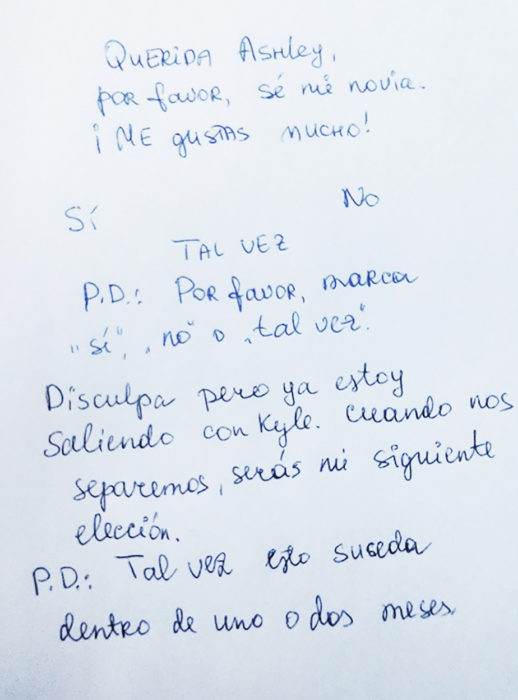 QUERIDA Ashley,
por favor, sé mi novia.
¡ME gustas mucho!
Sí
No
TAL VEZ
P.D.: Por favor, marca
„sí", „no" o „tal vez".
Disculpa pero ya estoy
saliendo con Kyle. cuando nos
separemos, serás mi siguiente
elección.
P.D.: Tal vez esto suseda
dentro de uno o dos meses.